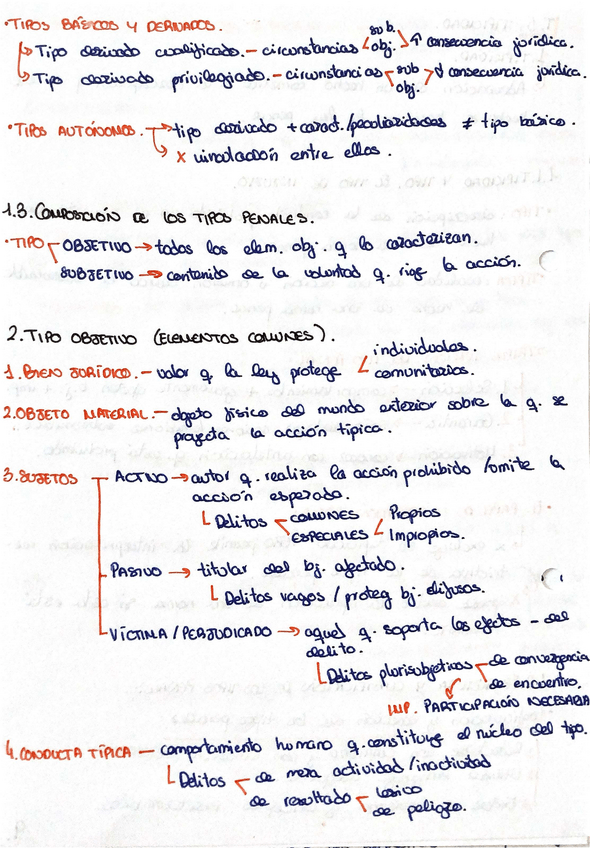 ·TIPOS BÁSICOS Y DERIVADOS.
↳ Tipo derivado cualificado. – circunstancias < sub. obj. > ↑ consecuencia jurídica.
↳ Tipo derivado privilegiado. – circunstancias < sub obj. > ↓ consecuencia jurídica.
·TIPOS AUTÓNOMOS. → tipo derivado + caract./peculiaridades ≠ tipo básico.
↳ x vinculación entre ellos.
1.3. COMPOSICIÓN DE LOS TIPOS PENALES.
·TIPO OBJETIVO → todos los elem. obj. q lo caracterizan.
SUBJETIVO → contenido de la voluntad q. rige la acción.
2. TIPO OBJETIVO (ELEMENTOS COMUNES).
1. BIEN JURÍDICO. – valor q la ley protege < individuales.
comunitarios.
2. OBJETO MATERIAL. – objeto físico del mundo exterior sobre la q. se
proyecta la acción típica.
3. SUJETOS ACTIVO → autor q. realiza la acción prohibida /omite la
acción esperada.
Delitos < COMUNES
ESPECIALES < Propios
Impropios.
PASIVO → titular del bj. afectado.
Delitos vagos / proteg bj. difusos.
VÍCTIMA / PERJUDICADO → aquel q. soporta los efectos – del
delito.
Delitos plurisubjetivos de convergencia
de encuentro.
IMP. PARTICIPACIÓN NECESARIA
4. CONDUCTA TÍPICA – comportamiento humano q. constituye el núcleo del tipo.
Delitos de mera actividad /inactividad
de resultado lesivo
de peligro.